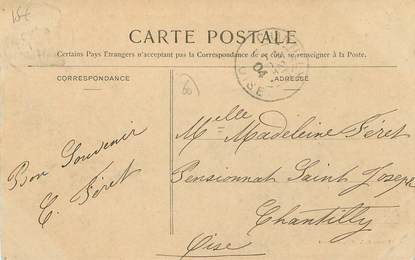 15€
CARTE POSTALE
Certains Pays Etrangers n'acceptant pas la Correspondance de ce côté, se renseigner à la Poste.
CORRESPONDANCE
ADRESSE
04
OISE
60
Bon Souvenir
E. Féret
Melle Madeleine Féret
Pensionnat Saint Joseph
Chantilly
Oise